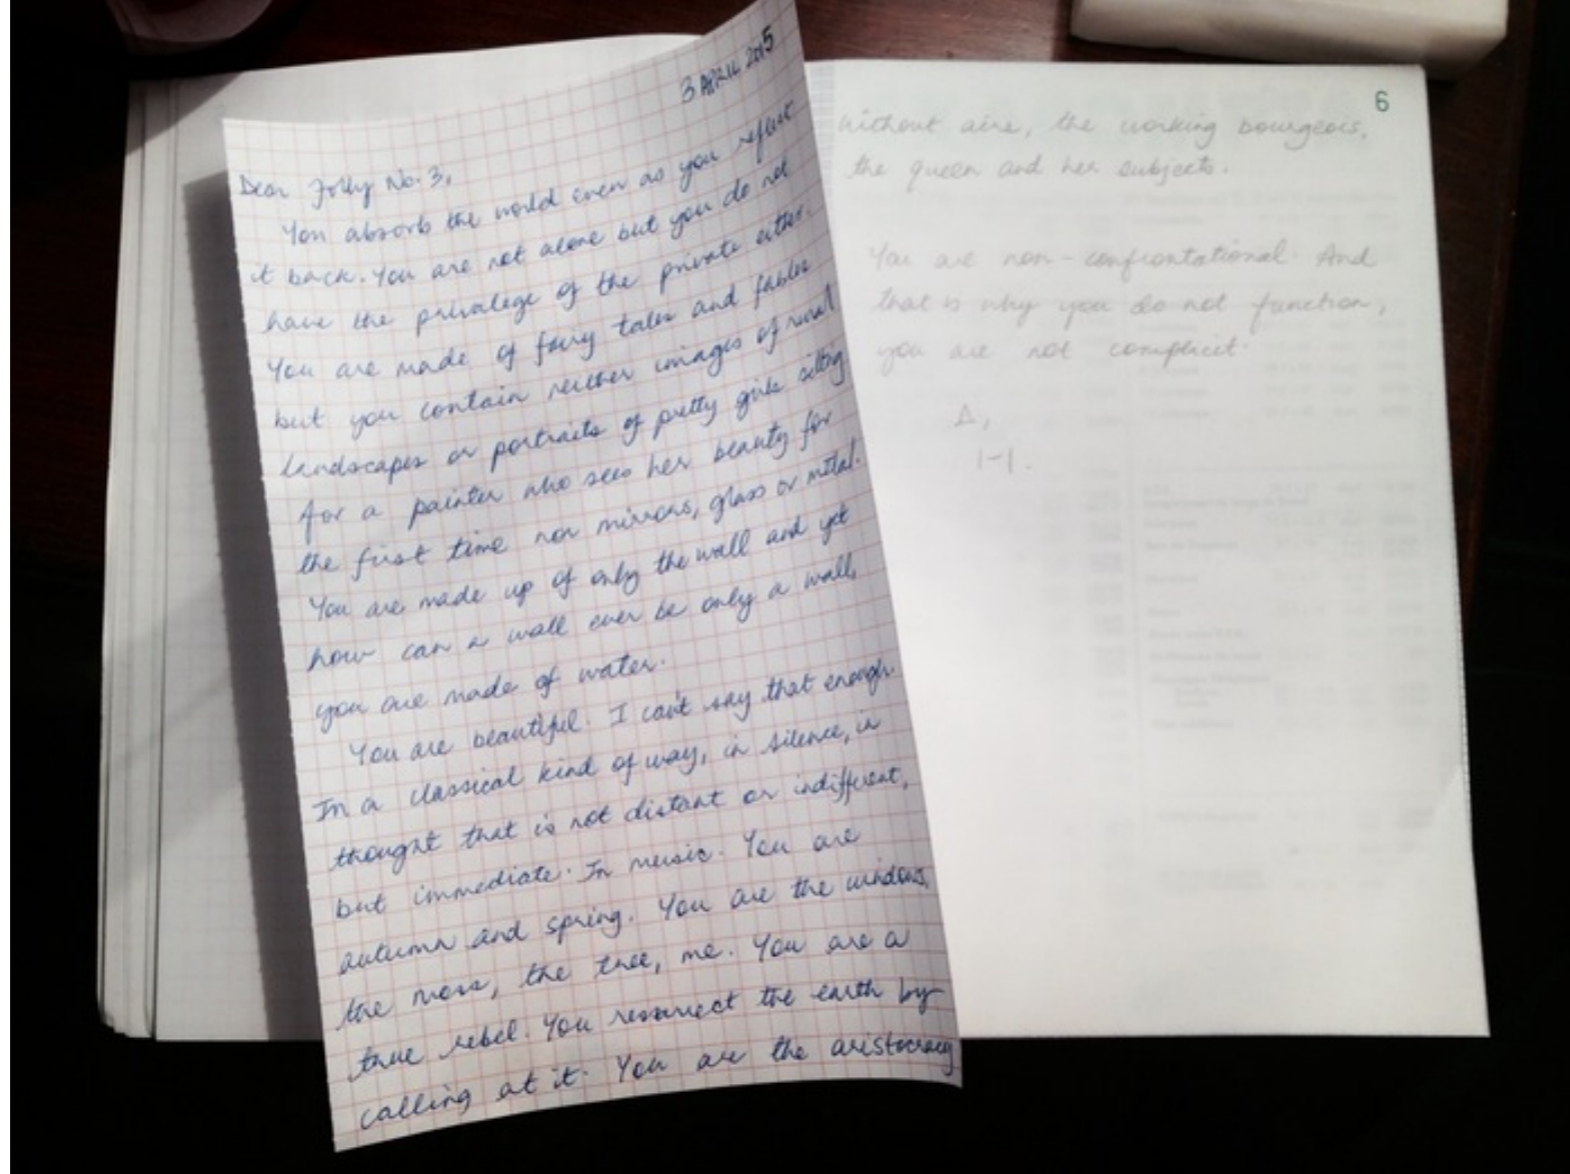 3 APRIL 2015
Dear Folly No. 3,
You absorb the world even as you reflect
it back. You are not alone but you do not
have the privalege of the private either.
You are made of fairy tales and fables
but you contain neither images of rural
landscapes or portraits of pretty girls sitting
for a painter who sees her beauty for
the first time nor mirrors, glass or metal.
You are made up of only the wall and yet
how can a wall ever be only a wall,
you are made of water.
You are beautiful. I can't say that enough.
In a classical kind of way, in silence, in
thought that is not distant or indifferent,
but immediate. In music. You are
autumn and spring. You are the windows,
the moss, the tree, me. You are a
true rebel. You resurrect the earth by
calling at it. You are the aristocracy
6
without aire, the working bourgeois,
the queen and her subjects.
You are non-confrontational. And
that is why you do not function,
you are not complicit.